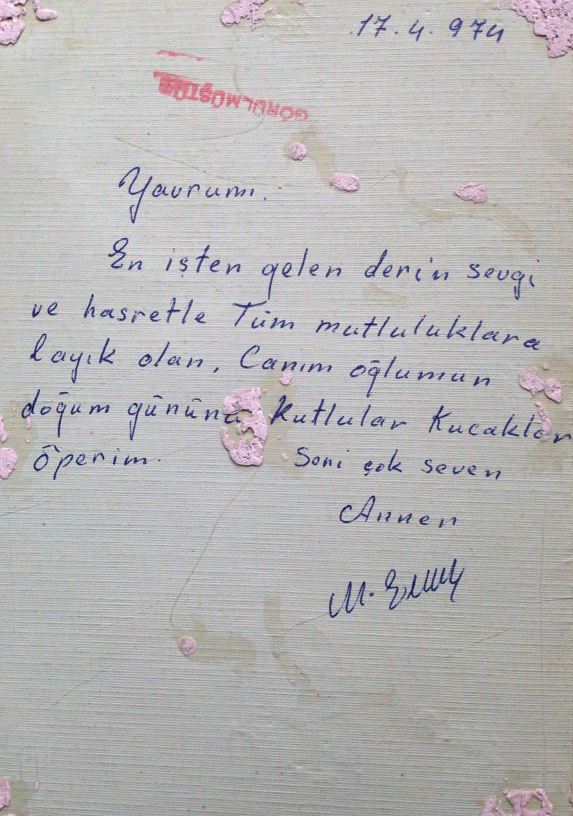 17.4.974
GÖRÜLMÜŞTÜR
Yavrum.
En işten gelen derin sevgi
ve hasretle Tüm mutluluklara
layık olan, Canım oğlumun
doğum gününü Kutlular Kucaklar
öperim.
Seni çok seven
Annen
M.